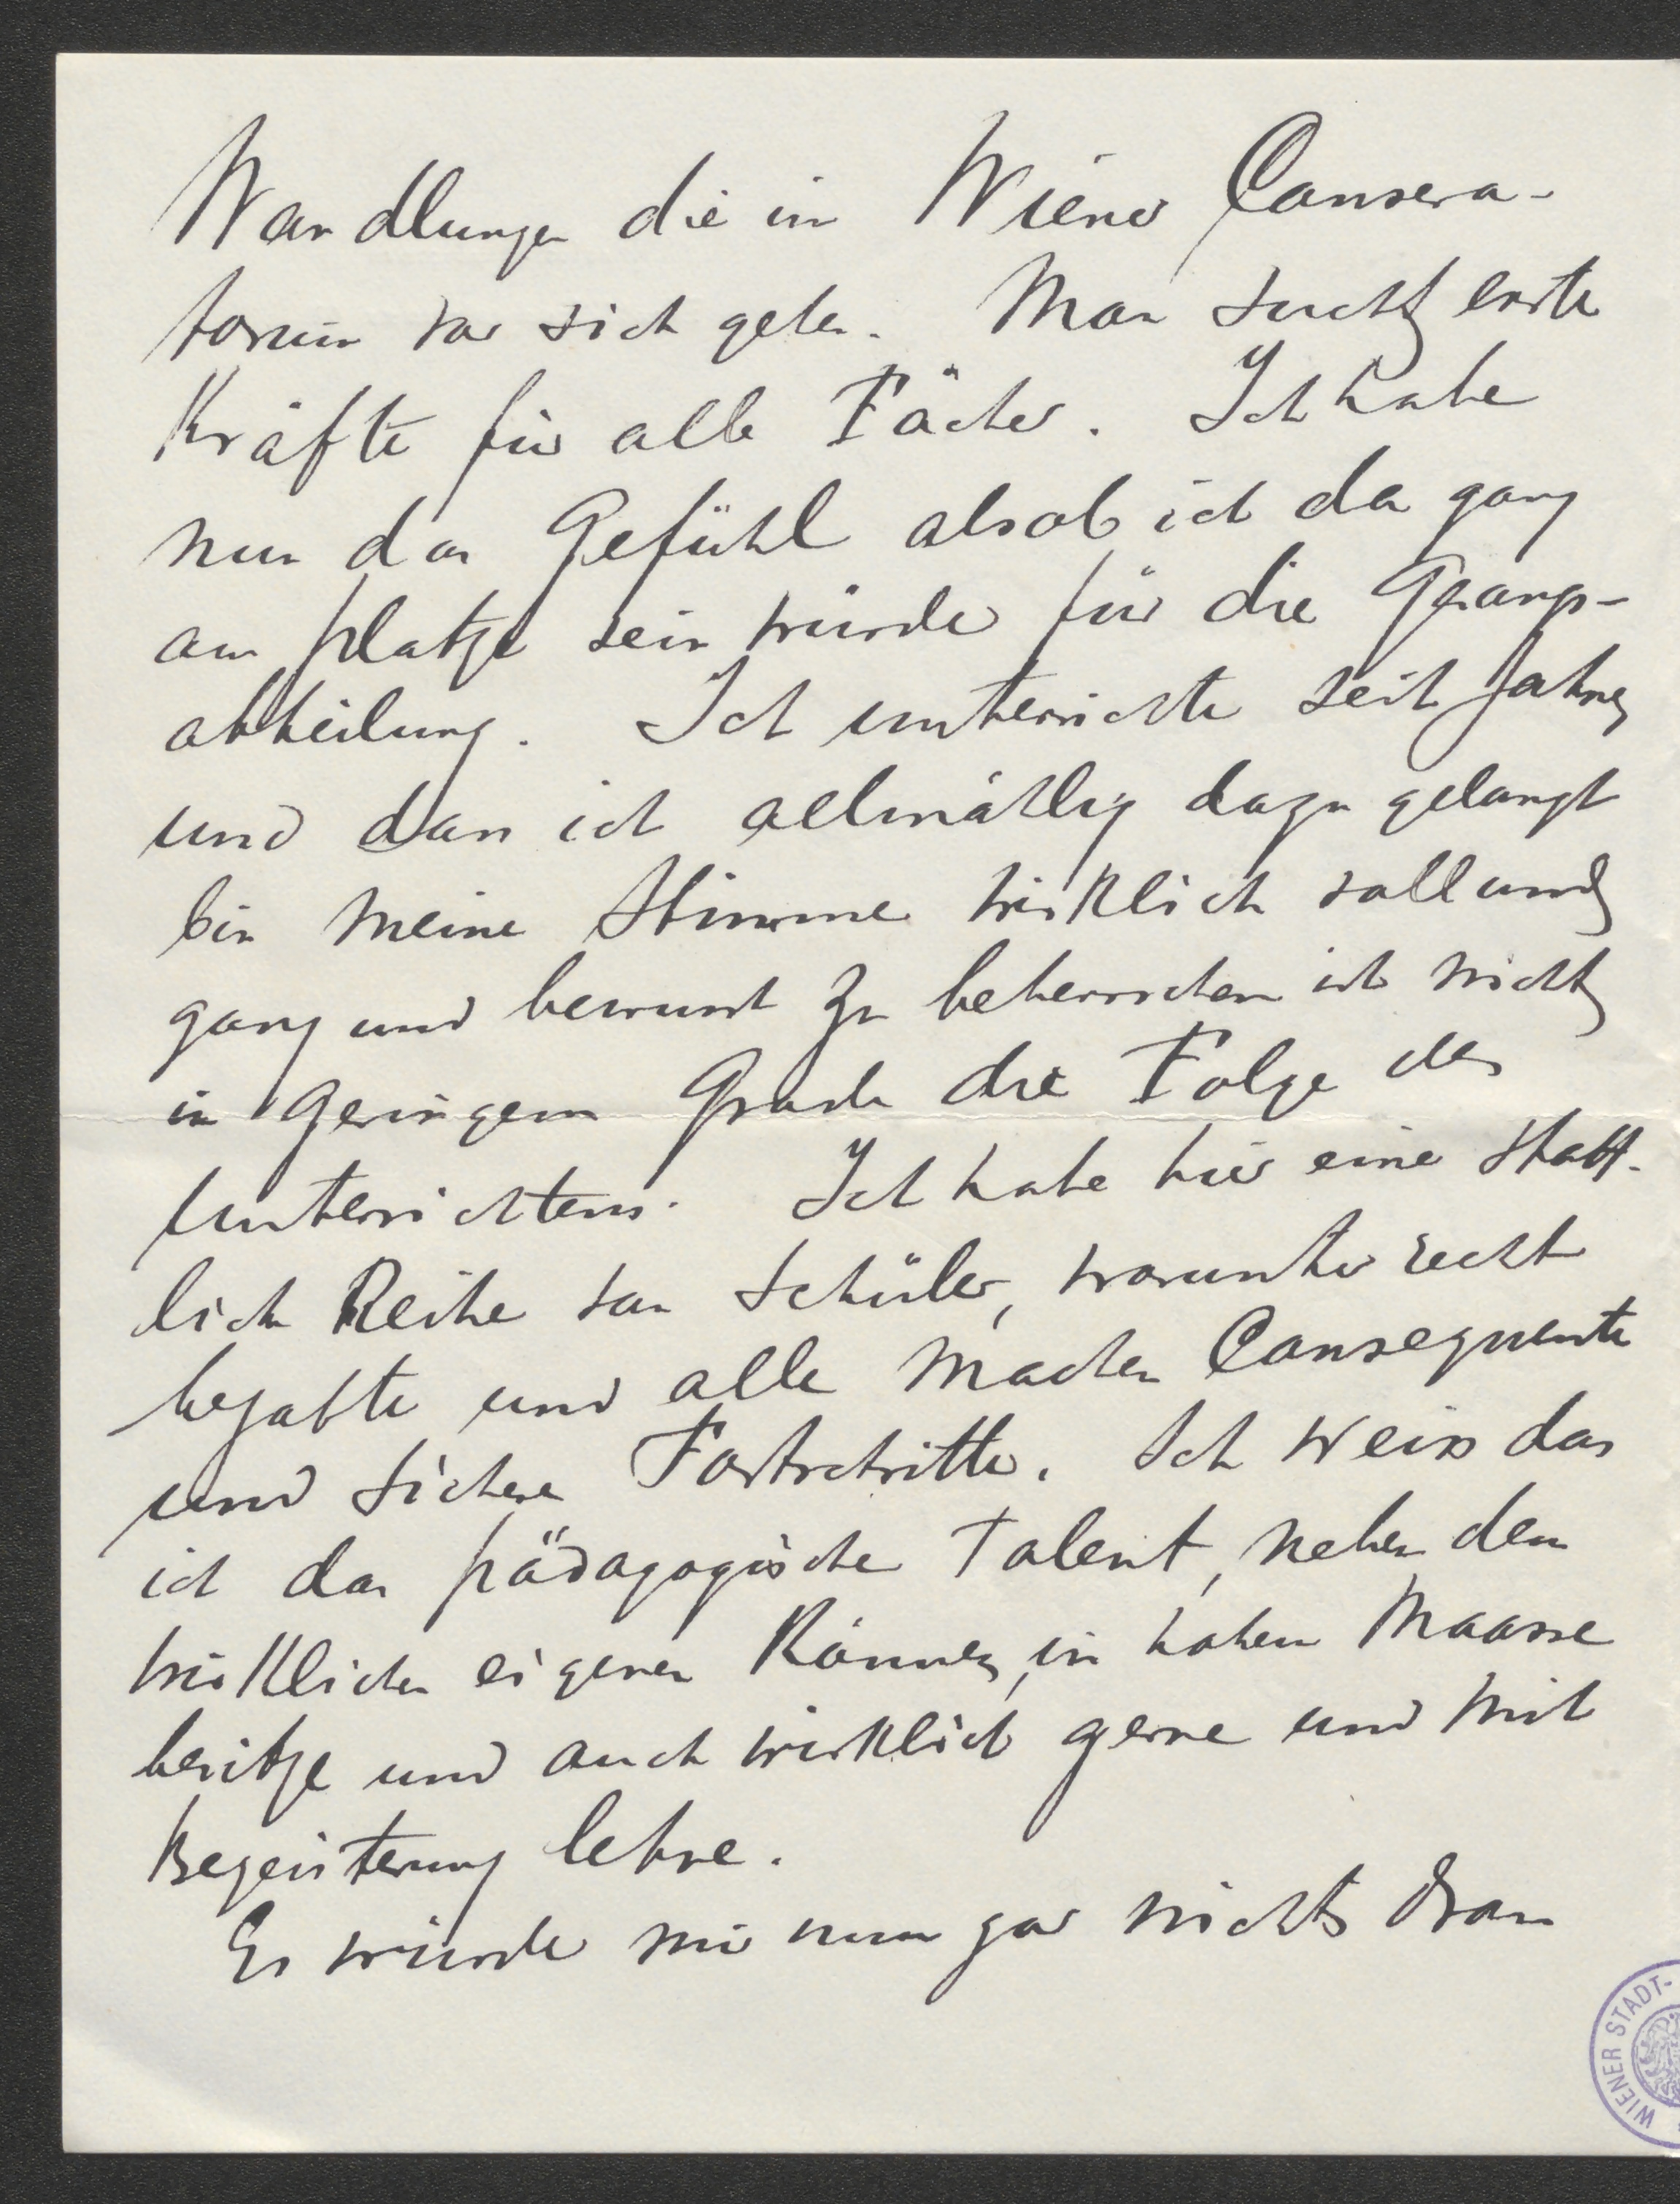 Wandlungen die im Wiener Conserva-
torium vor sich gehen. Man sucht erste
Kräfte für alle Fächer. Ich habe
nun das Gefühl als ob ich da ganz
am Platze sein würde für die Gesangs-
abtheilung. Ich unterrichte seit Jahren
und dass ich allmählig dazu gelangt
bin meine Stimme wirklich voll und
ganz und bewusst zu beherrschen ist nicht
in geringem Grade die Folge des
Unterrichtens. Ich habe hier eine statt-
liche Reihe von Schüler, worunter recht
begabte und alle machen Consequente
und sichere Fortschritte. Ich weiss das
ich das pädagogische Talent, neben dem
wirklichen eigenen Können, in hohem Maasse
besitze und auch wirklich gerne und mit
Begeisterung lehre.
Es würde mir nun gar nichts dran
WIENER STADT-